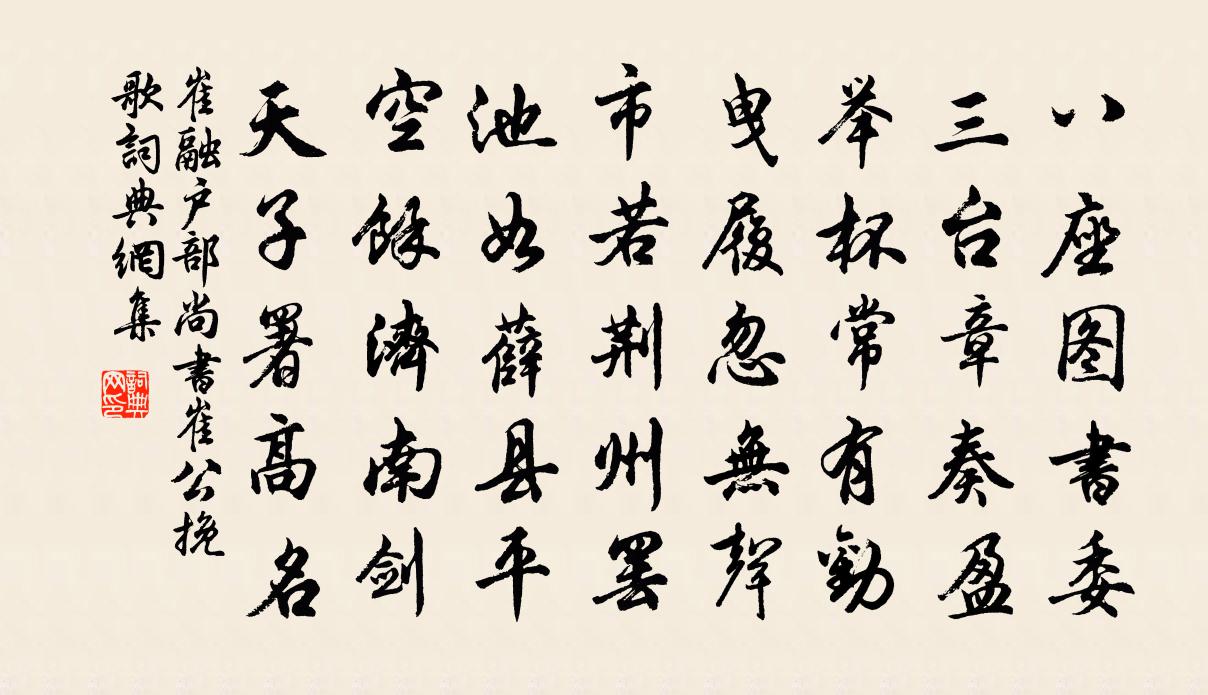 八座图書委
三台章奏盈
举杯常有勸
曳履忽無聲
市若荆州罢
池如薛县平
空餘濟南剑
天子署高名
崔融户部尚書崔公挽
歌詞典網集
詞典网印